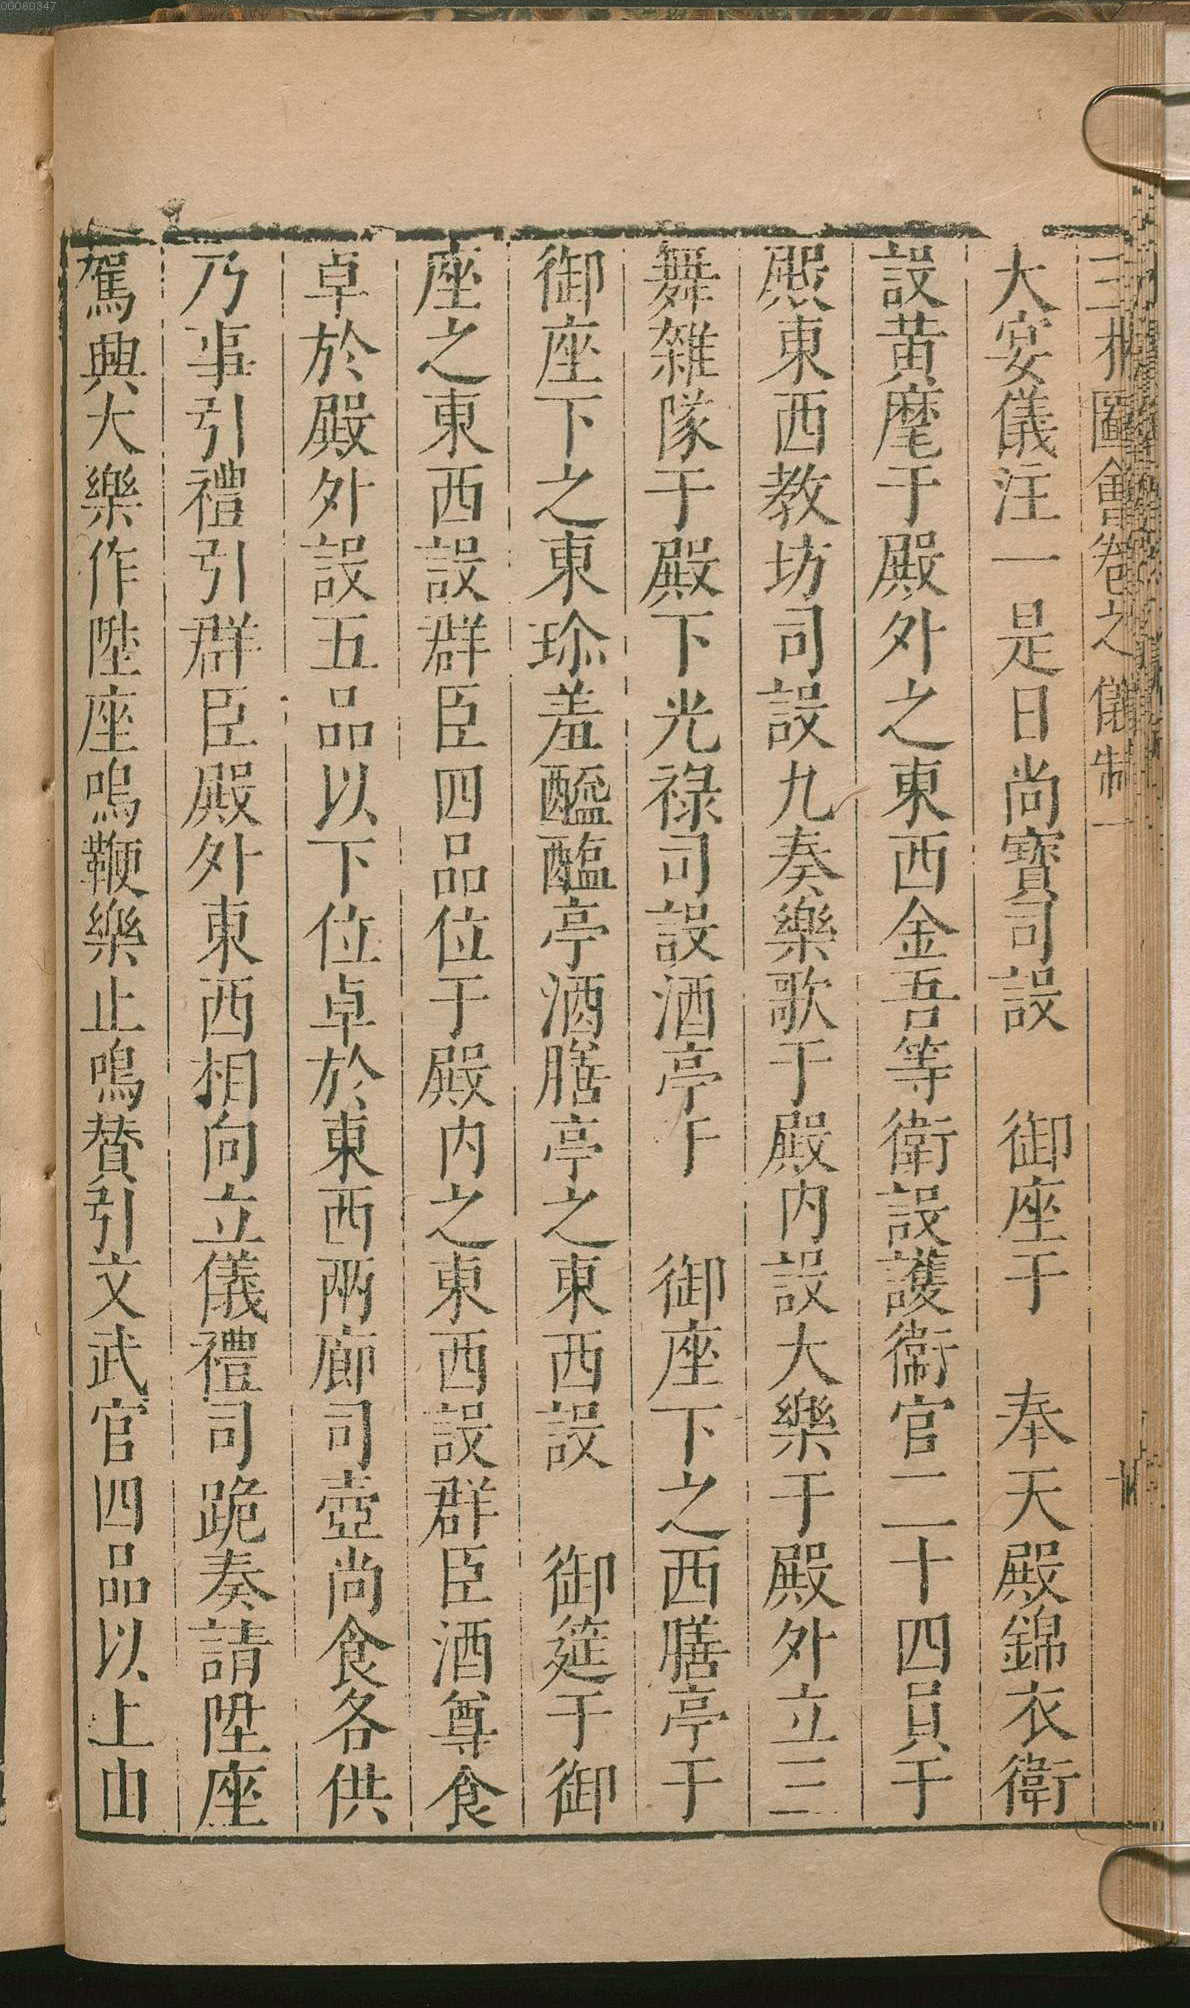 00060347
三才圖會卷之儀制一
大宴儀注一是日尚寶司設　御座于　奉天殿錦衣衛
設黄麾于殿外之東西金吾等衛設護衞官二十四員于
殿東西教坊司設九奏樂歌于殿内設大樂于殿外立三
舞雜隊于殿下光祿司設酒亭于　御座下之西膳亭于
御座下之東珎羞醯醢亭酒膳亭之東西設　御筵于御
座之東西設群臣四品位于殿内之東西設群臣酒尊食
卓於殿外設五品以下位卓於東西兩廊司壺尚食各供
乃事引禮引群臣殿外東西相向立儀禮司跪奏請陞座
駕興大樂作陞座鳴鞭樂止鳴賛引文武官四品以上由